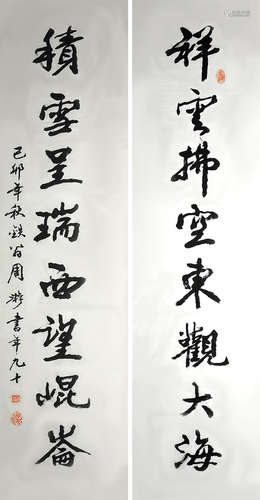 祥雲拂空東觀大海
積雪呈瑞西望崐崙
己卯年秋鐵翁周游書年九十